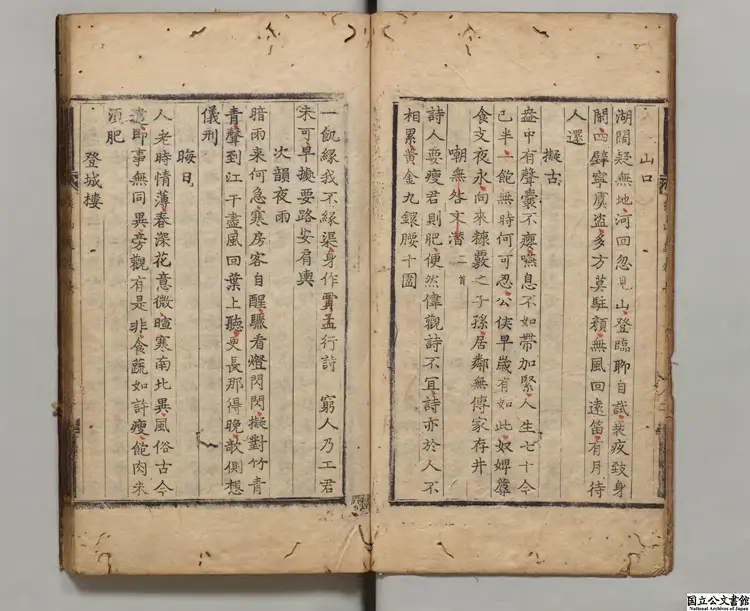 山口
湖闊疑無地河回忽見山登臨聊自試衰疾致身
閑四壁寧虞盜多方莫駐顏無風回遠笛有月待
人還
擬古
盎中有聲囊不瘦嚥息不如帶加緊人生七十今
已半一飽無時何可忍公侯早歲有如此奴婢羣
食支夜永向來糠覈之子孫居鄰無傳家存井
嘲無咎文潛 二首
詩人要瘦君則肥便然偉觀詩不宜詩亦於人不
相累黃金九鐶腰十圍
一飢緣我不緣渠身作賈孟行詩 窮人乃工君
未可早據要路安肩輿
次韻夜雨
暗雨來何急寒房客自醒驟看燈閃閃擬對竹青
青聲到江干盡風回葉上聽更長那得曉欹側想
儀刑
晦日
人老時情薄春深花意微暄寒南北異風俗古今
違即事無同異旁觀有是非食蔬如許瘦飽肉未
須肥
登城樓
国立公文書館
National Archives of Japan